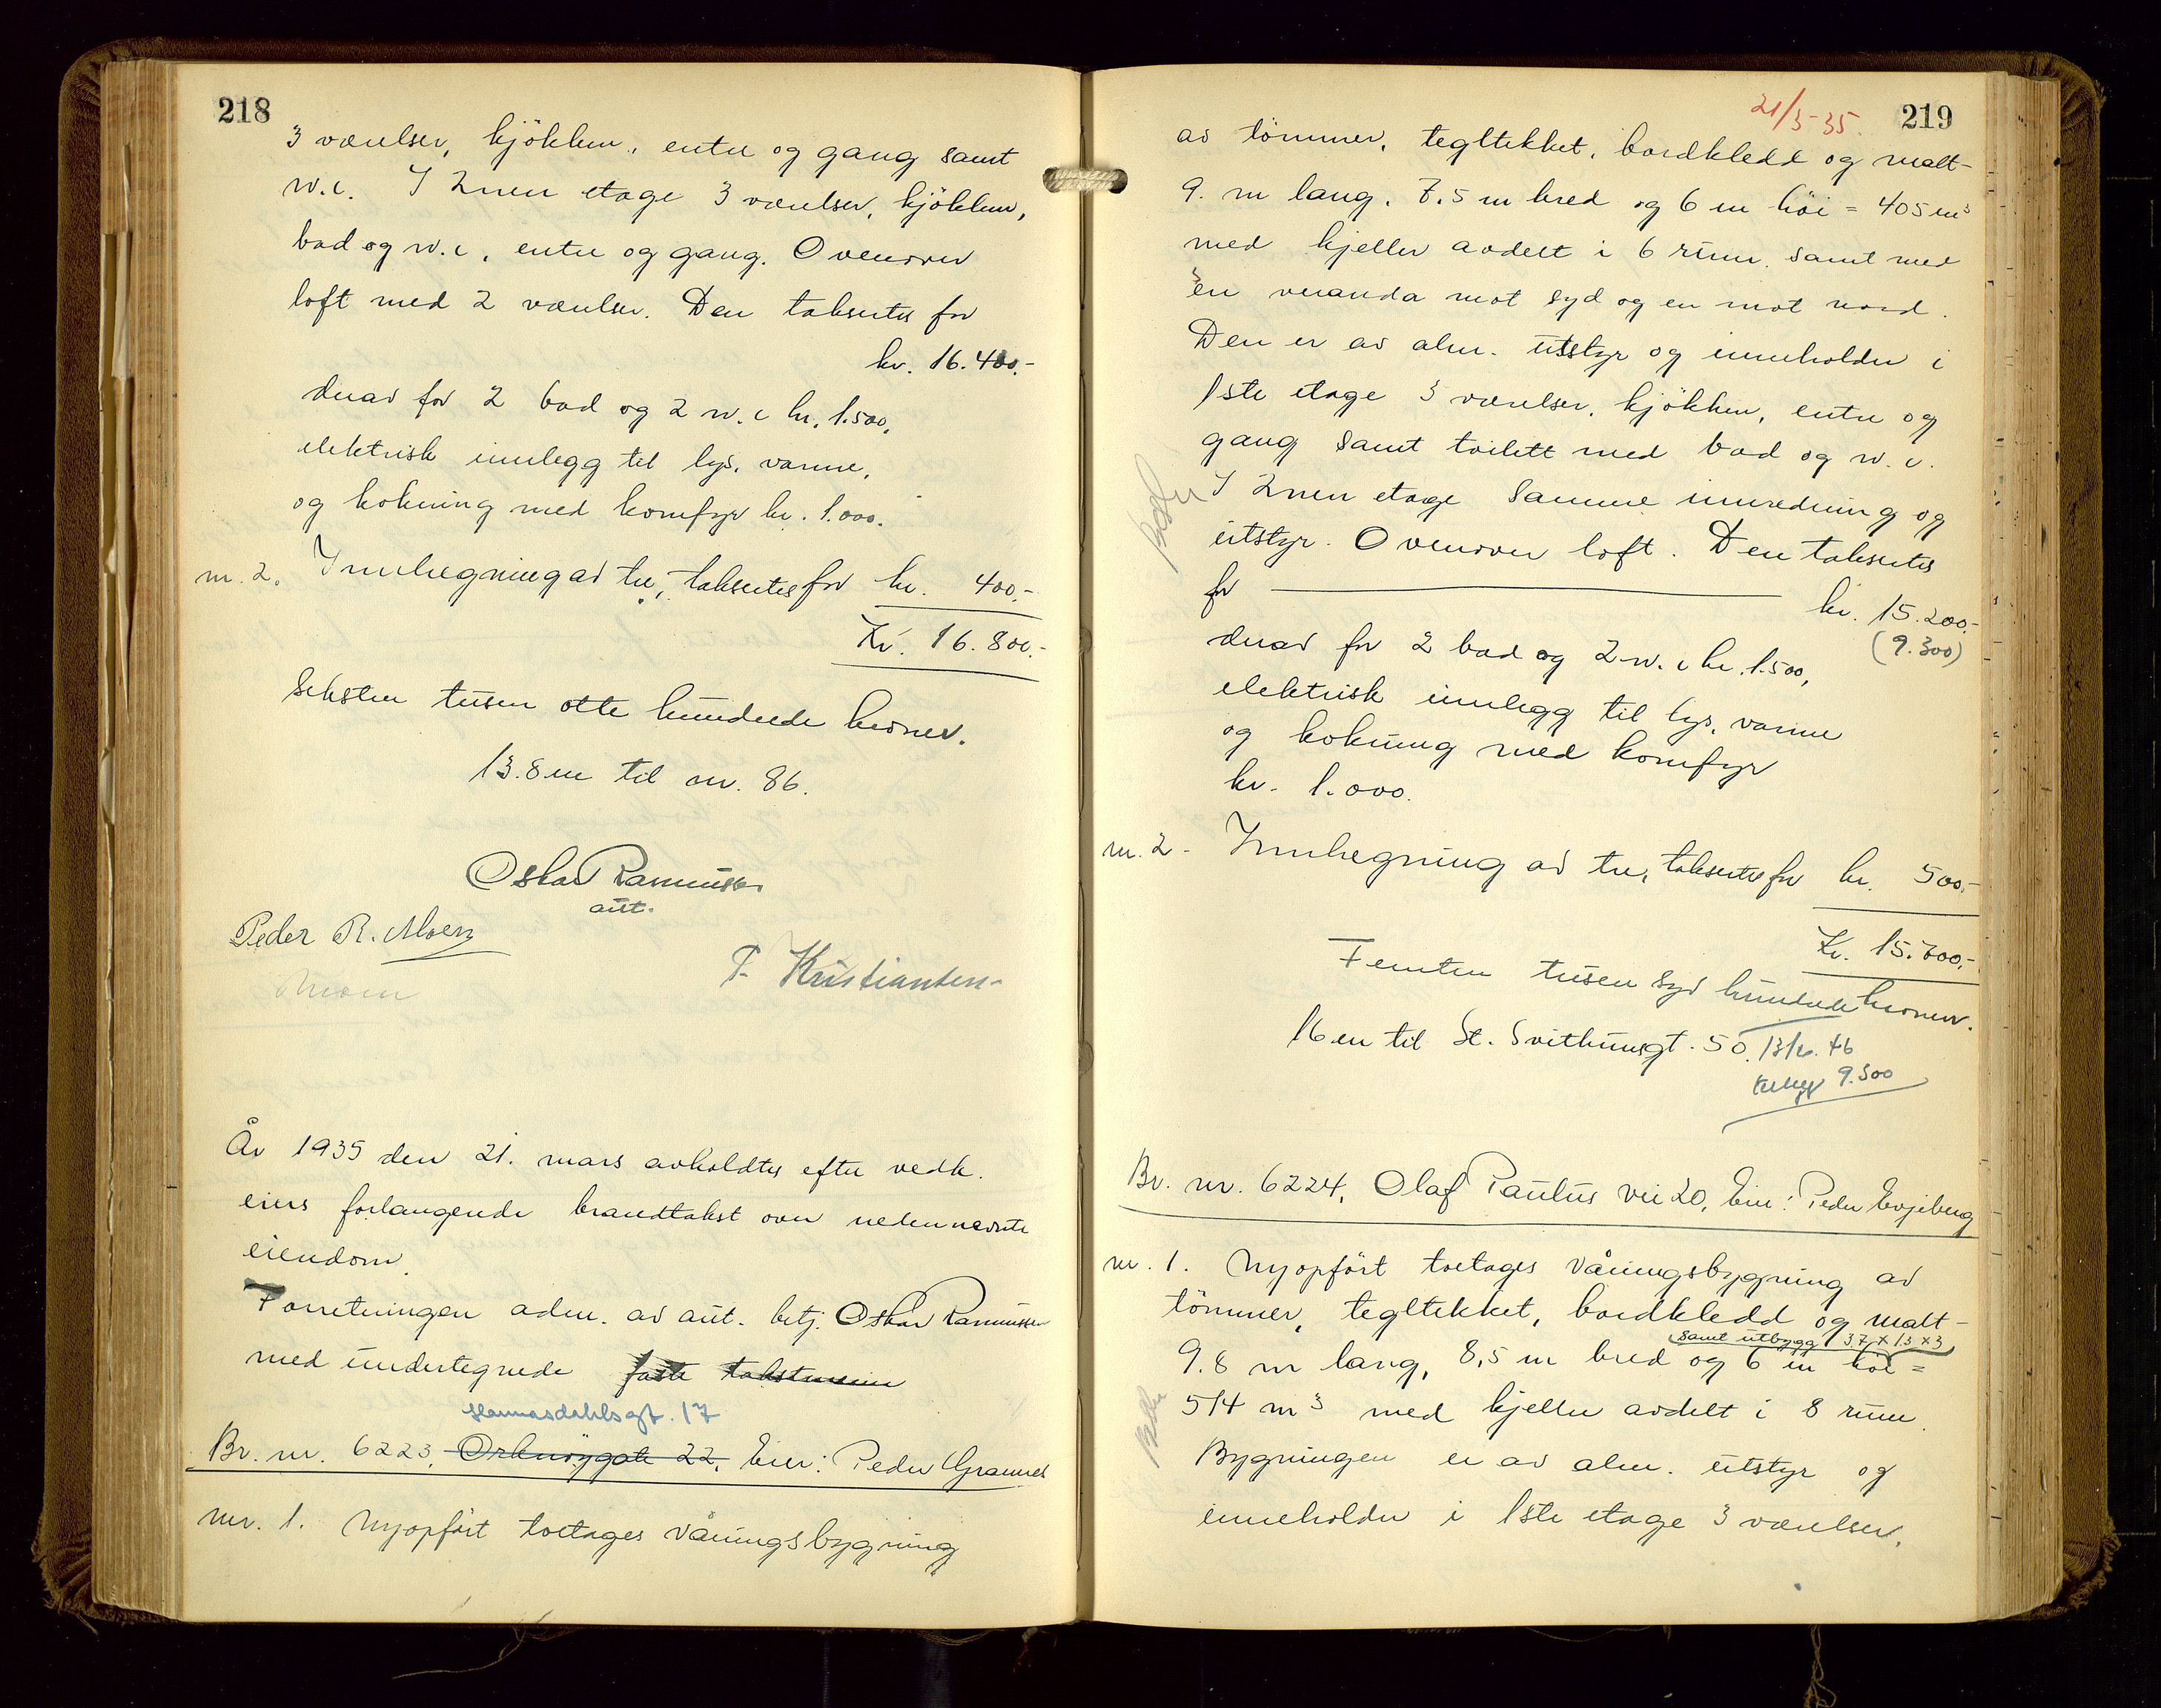 218
3 værelser, kjökken, entre og gang samt
w.c. I 2nen etage 3 værelser, kjökken,
bad og w.c, entre og gang. Ovenover
loft med 2 værelser. Den takseres for
kr. 16.400.-
derav for 2 bad og 2 w.c kr. 1.500,
elektrisk innlegg til lys, varme,
og kokning med komfyr kr. 1.000.
nr. 2. Innhegning av tre, takseres for kr. 400.-
Kr. 16.800.-
Seksten tusen otte hundrede kroner.
13.8 m til nr. 86.
Oskar Rasmussen
aut.
Peder R. Moen
T. Kristiansen
År 1935 den 21. mars avholdtes efter vedk.
eiers forlangende brandtakst over nedennevnte
eiendom.
Forretningen adm. av aut. betj. Oskar Rasmussen
med undertegnede faste takstmenn
Hannasdahlsgt. 17
Br. nr. 6223, Orknöygate 22, Eier: Peder Grannes
nr. 1. Nyopført toetages våningsbygning
21/3-35
219
av tömmer, tegltekket, bordkledd og malt-
9. m lang, 7.5 m bred og 6 m höi = 405 m³
med kjeller avdelt i 6 rum, samt med
en veranda mot syd og en mot nord.
Den er av alm. utstyr og inneholder i
1ste etage 3 værelser, kjökken, entre og
gang samt toilett med bad og w.c.
I 2nen etage samme innredning og
utstyr. Ovenover loft. Den takseres
for kr. 15.200.-
(9.300)
derav for 2 bad og 2 w.c kr. 1.500,
elektrisk innlegg til lys, varme
og kokning med komfyr
kr. 1.000.
nr. 2 - Innhegning av tre, takseres for kr. 500.-
Kr. 15.700.-
Femten tusen syv hundrede kroner.
16 m til St. Svithunsgt. 50. 13/6. 46
9.500
Br. nr. 6224, Olaf Paulus vei 20, Eier: Peder Evjeberg
nr. 1. Nyopfört toetages våningsbygning av
tömmer, tegltekket, bordkledd og malt-
samt utbygg 3.7 x 1.5 x 3
9.8 m lang, 8,5 m bred og 6 m höi =
514 m³ med kjeller avdelt i 8 rum.
Bygningen er av alm. utstyr og
inneholder i 1ste etage 3 værelser,